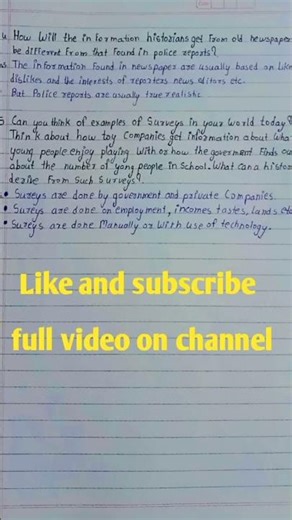 4. How Will the information historians get From old newspaper
be different From that Found in police reports?
The information Found in newspaper are usually based on Like
dislikes and the interests of reporters news editors etc.
But Police reports are usually true realistic.
5. Can you think of examples of Surveys in your world today?
Think about how toy Companies get information about wha
young people enjoy playing With or how the government Finds ou
about the number of yong people in School. What can a histo
derive From Such Surveys?
• Sureys are done by government and private Companies.
• Sureys are done on employment, incomes tastes, lands etc
• Sureys are done Manually or With use of technology.
Like and subscribe
full video on channel